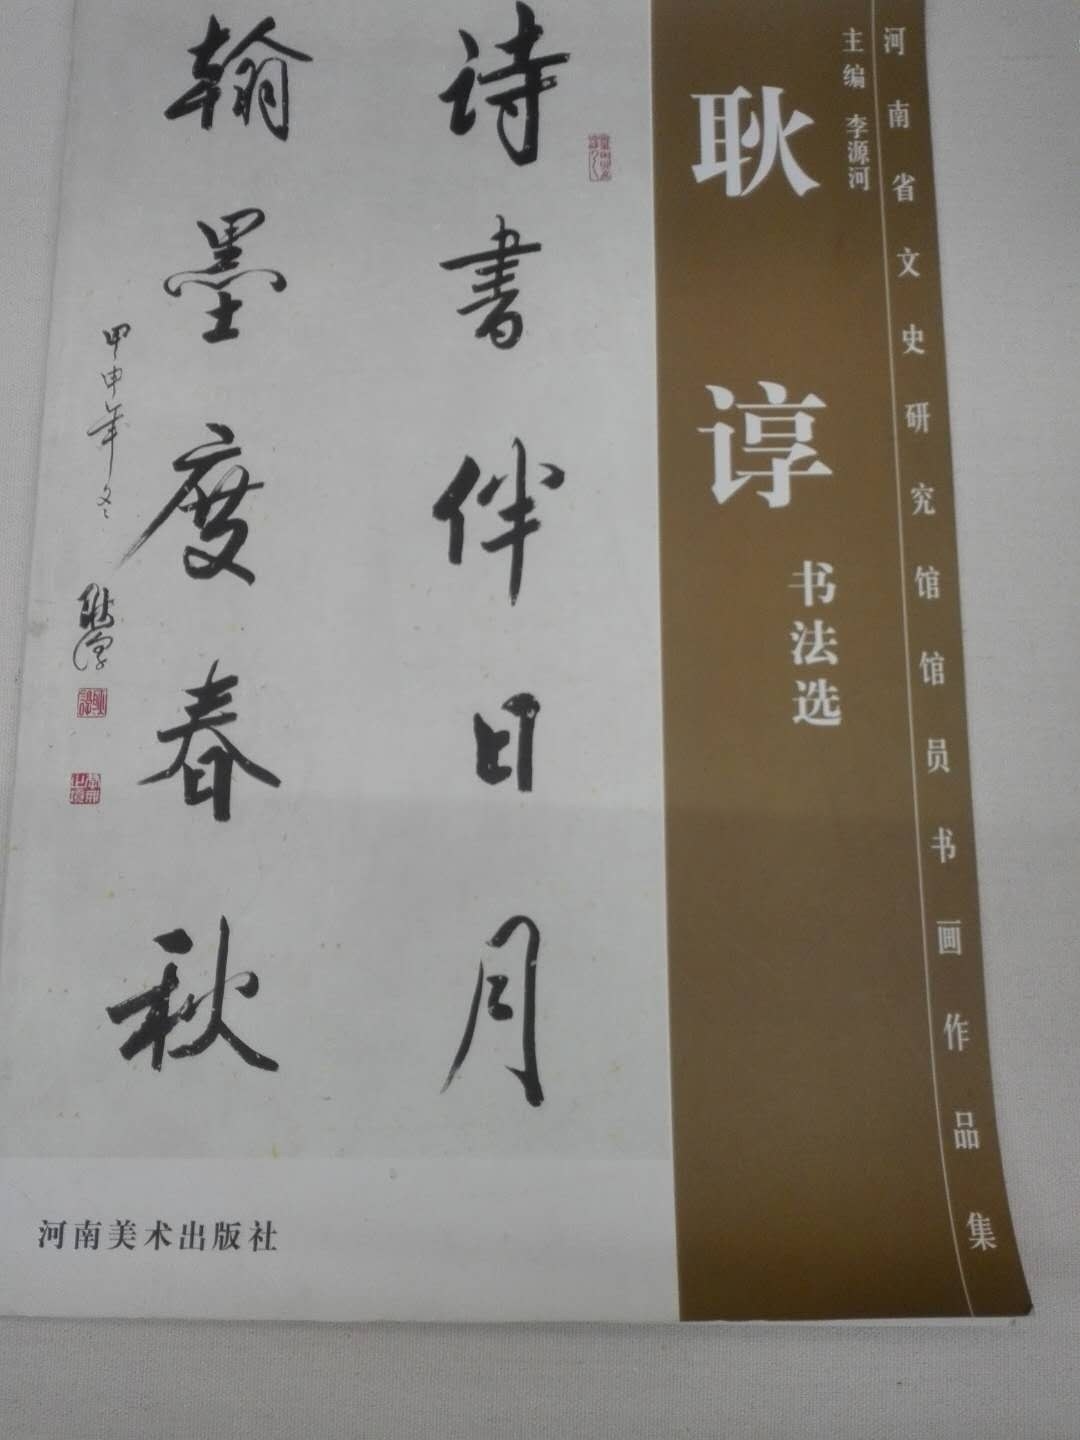 河南省文史研究馆馆员书画作品集
主编 李源河
耿谆
书法选
诗书伴日月
翰墨度春秋
甲申年冬
耿谆
河南美术出版社